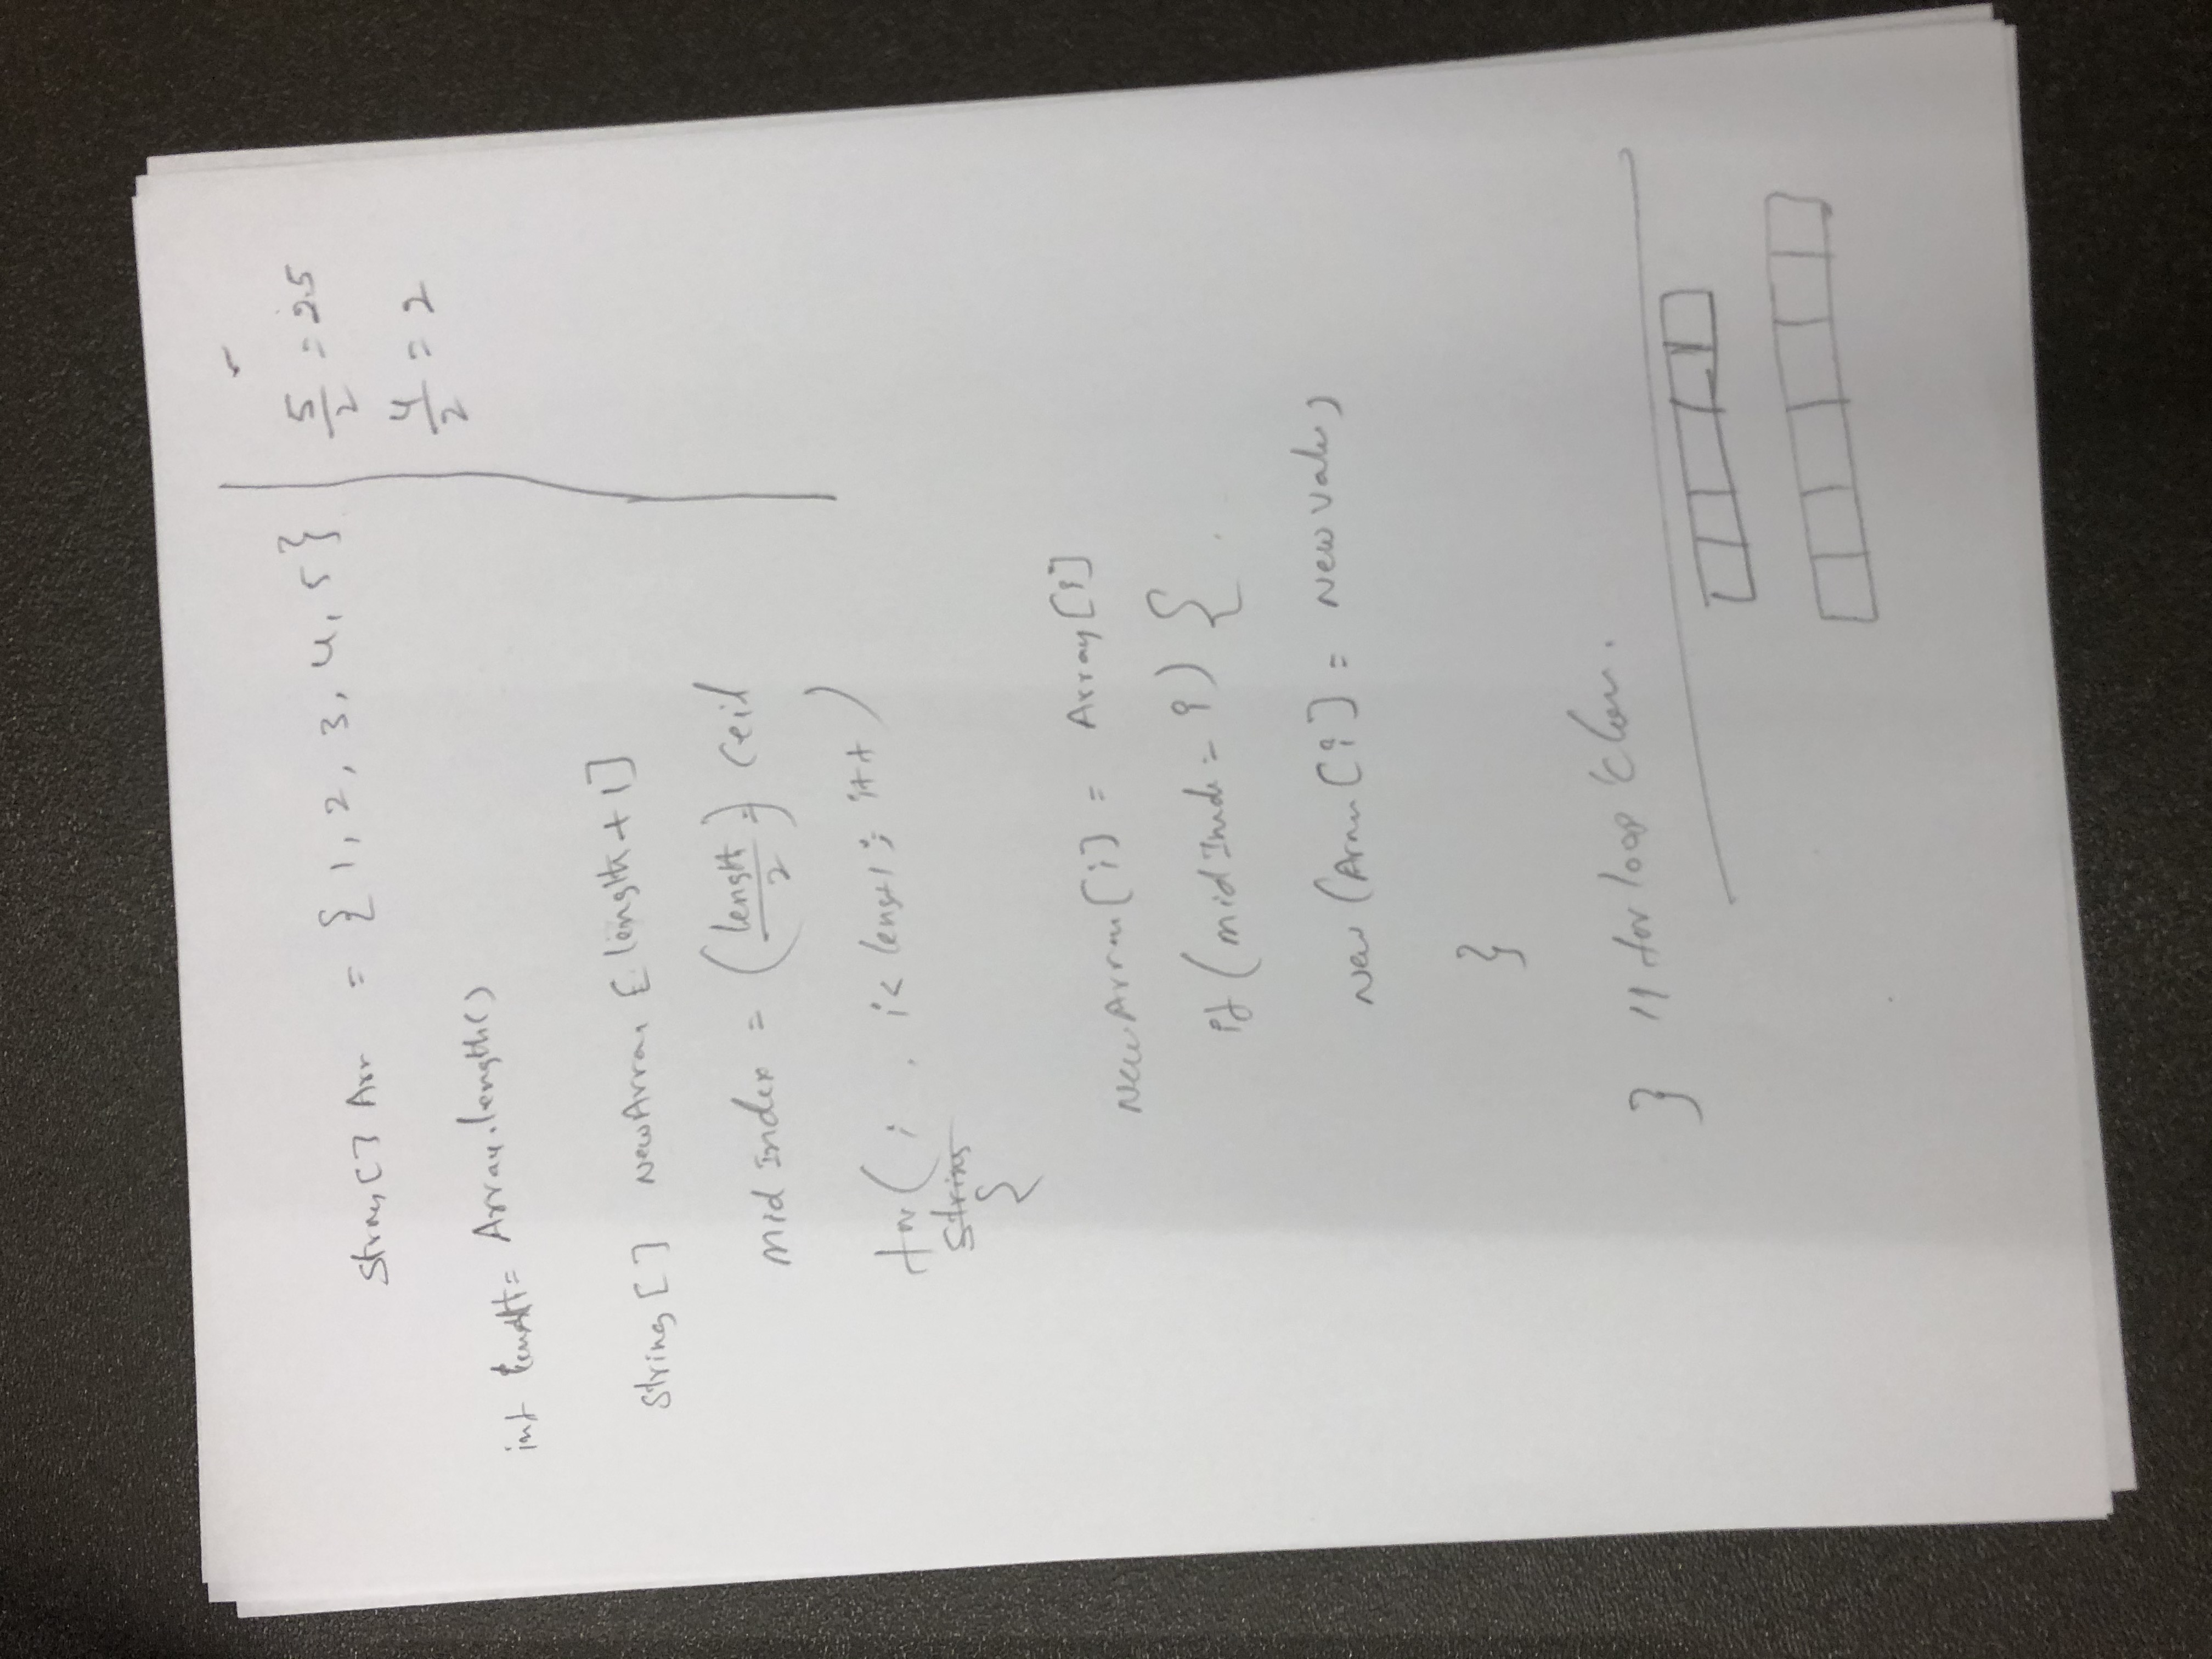 String[] Arr = { 1, 2, 3, 4, 5 }
5/2 = 2.5
4/2 = 2
int length = Array.length()
String[] NewArray [length + 1]
mid Index = (length/2) ceil
for ( i , i < length ; i++ )
{
NewArray[i] = Array[i]
if (mid Inde = i) {
new (Array[i] = New value)
}
} // for loop close.